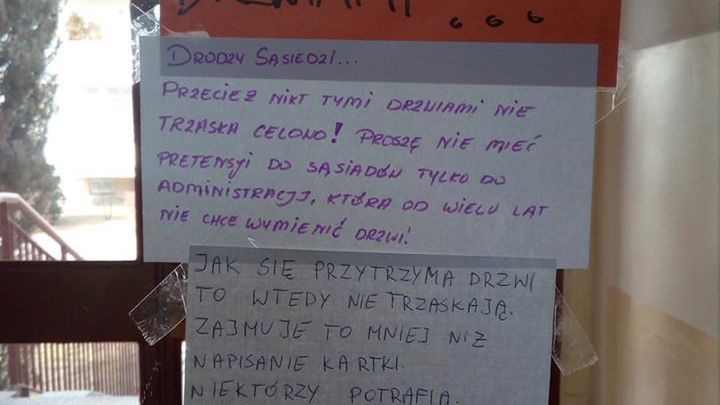 DRODZY SĄSIEDZI...
PRZECIEŻ NIKT TYMI DRZWIAMI NIE
TRZASKA CELOWO! PROSZĘ NIE MIEĆ
PRETENSJI DO SĄSIADÓW TYLKO DO
ADMINISTRACJI, KTÓRA OD WIELU LAT
NIE CHCE WYMIENIĆ DRZWI!
JAK SIĘ PRZYTRZYMA DRZWI
TO WTEDY NIE TRZASKAJĄ.
ZAJMUJE TO MNIEJ NIŻ
NAPISANIE KARTKI.
NIEKTÓRZY POTRAFIĄ.